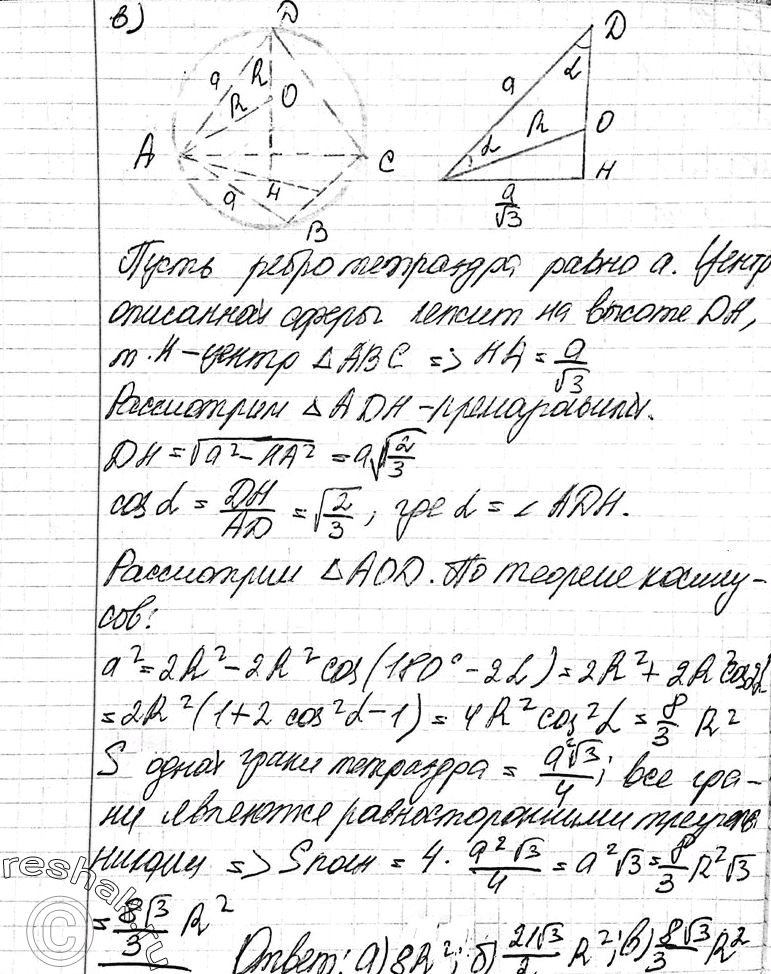 в)
D
a
R
R
O
A
C
H
a
B
D
α
a
R
O
α
H
a/√3
Пусть ребро тетраэдра равно a. Центр
описанной сферы лежит на высоте DH,
т. H – центр △ABC => HA = a/√3
Рассмотрим △ADH – прямоугольный.
DH = √(a² – HA²) = a√(2/3)
cos α = DH/AD = √(2/3), где α = ∠ADH.
Рассмотрим △AOD. По теореме косину-
сов:
a² = 2R² – 2R² cos(180° – 2α) = 2R² + 2R² cos2α
= 2R²(1 + 2 cos²α – 1) = 4R² cos²α = 8/3 R²
S одной грани тетраэдра = a²√3/4; все гра-
ни являются равносторонними треуголь
никами => Sполн = 4 · a²√3/4 = a²√3 = 8/3 R²√3
= 8√3/3 R²
Ответ: а) 8R²; б) 21√3/2 R²; в) 8√3/3 R²
reshak.ru
©